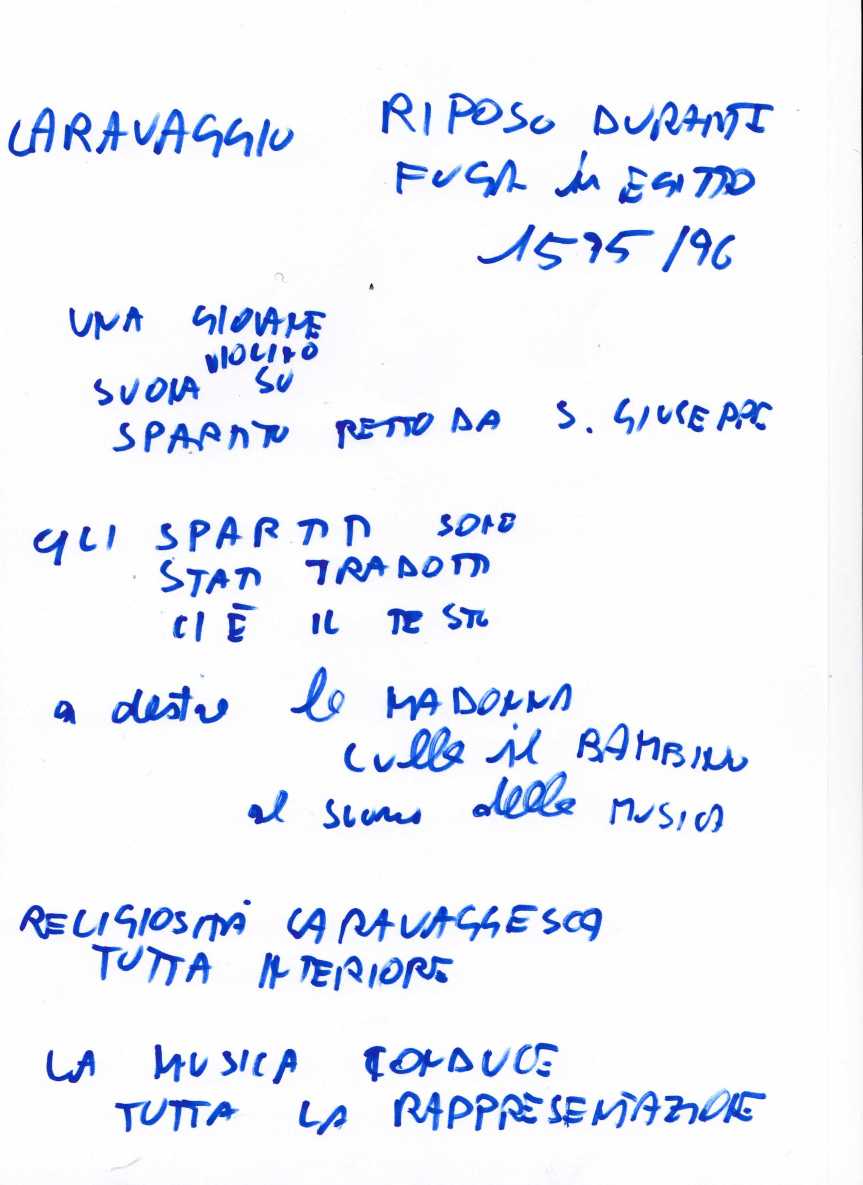 CARAVAGGIO RIPOSO DURANTE
FUGA in EGITTO
1595/96
UNA GIOVANE
VIOLINO
SUONA SU
SPARTITO RETTO DA S. GIUSEPPE
GLI SPARTITI SONO
STATI TRADOTTI
CI È IL TESTO
a destra la MADONNA
culla il BAMBINO
al suono della MUSICA
RELIGIOSITÀ CARAVAGGESCA
TUTTA INTERIORE
LA MUSICA CONDUCE
TUTTA LA RAPPRESENTAZIONE